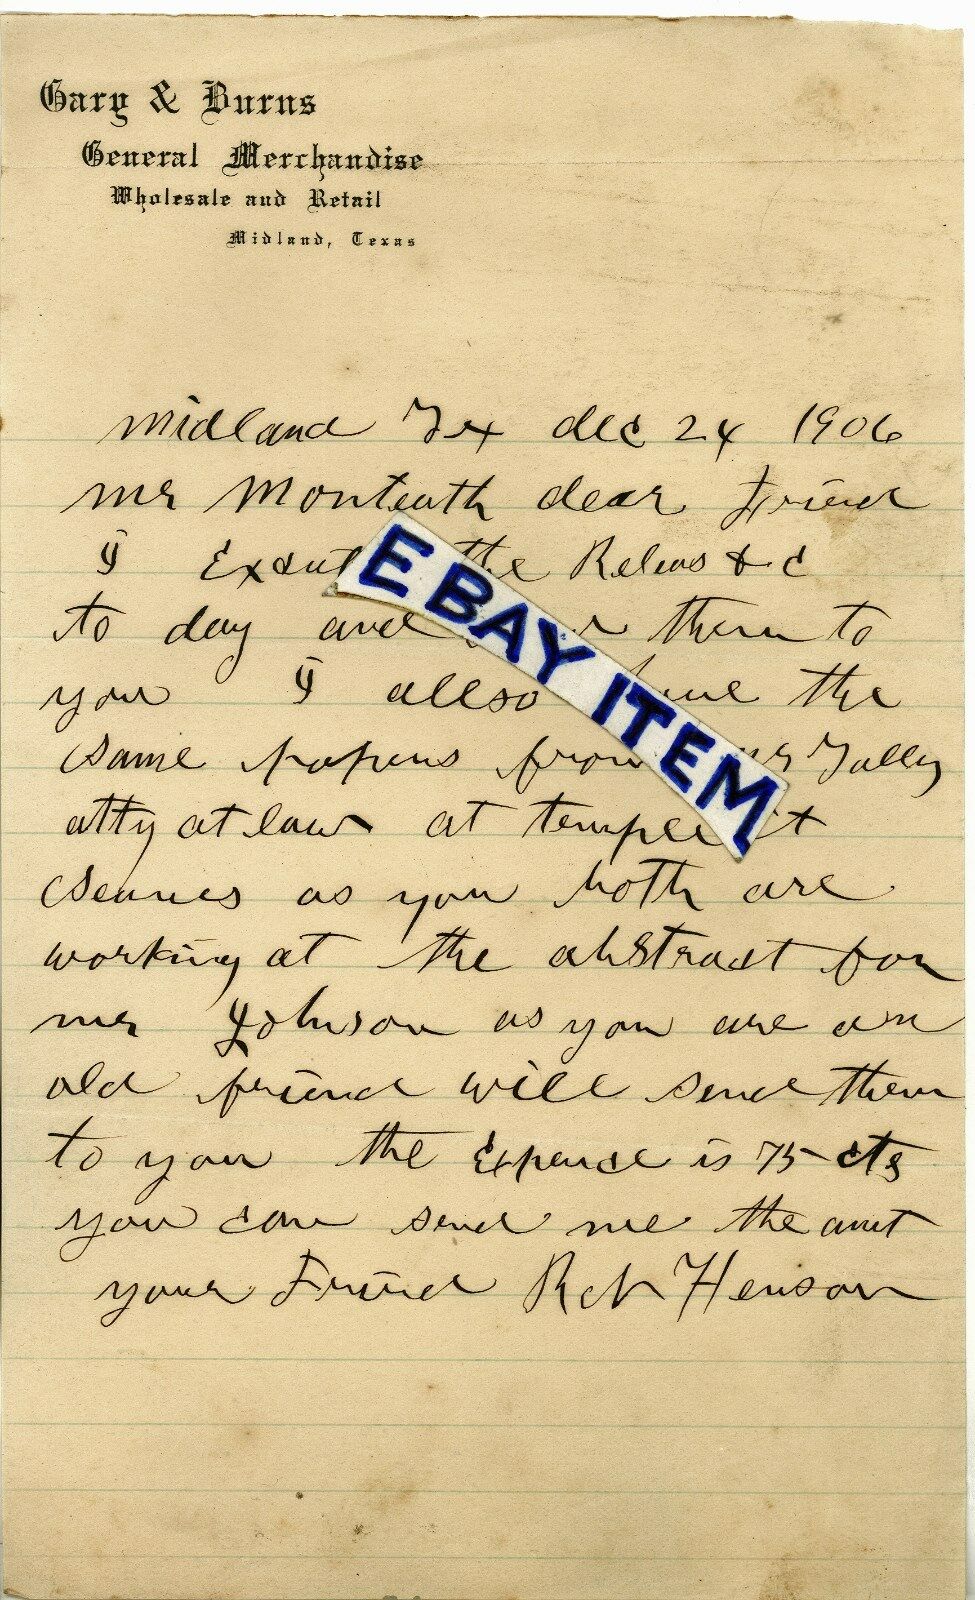 Gary & Burns
General Merchandise
Wholesale and Retail
Midland, Texas
Midland Tex dec 24 1906
mr Monteath dear Friend
I the Releas & c
to day and them to
you I allso the
same papers from Talley
atty at law at temple it
Seames as you both are
working at the abstract for
mr Johnson as you are an
old friend will send them
to you the Expence is 75 cts
you can send me the amt
your Friend Henson
EBAY ITEM